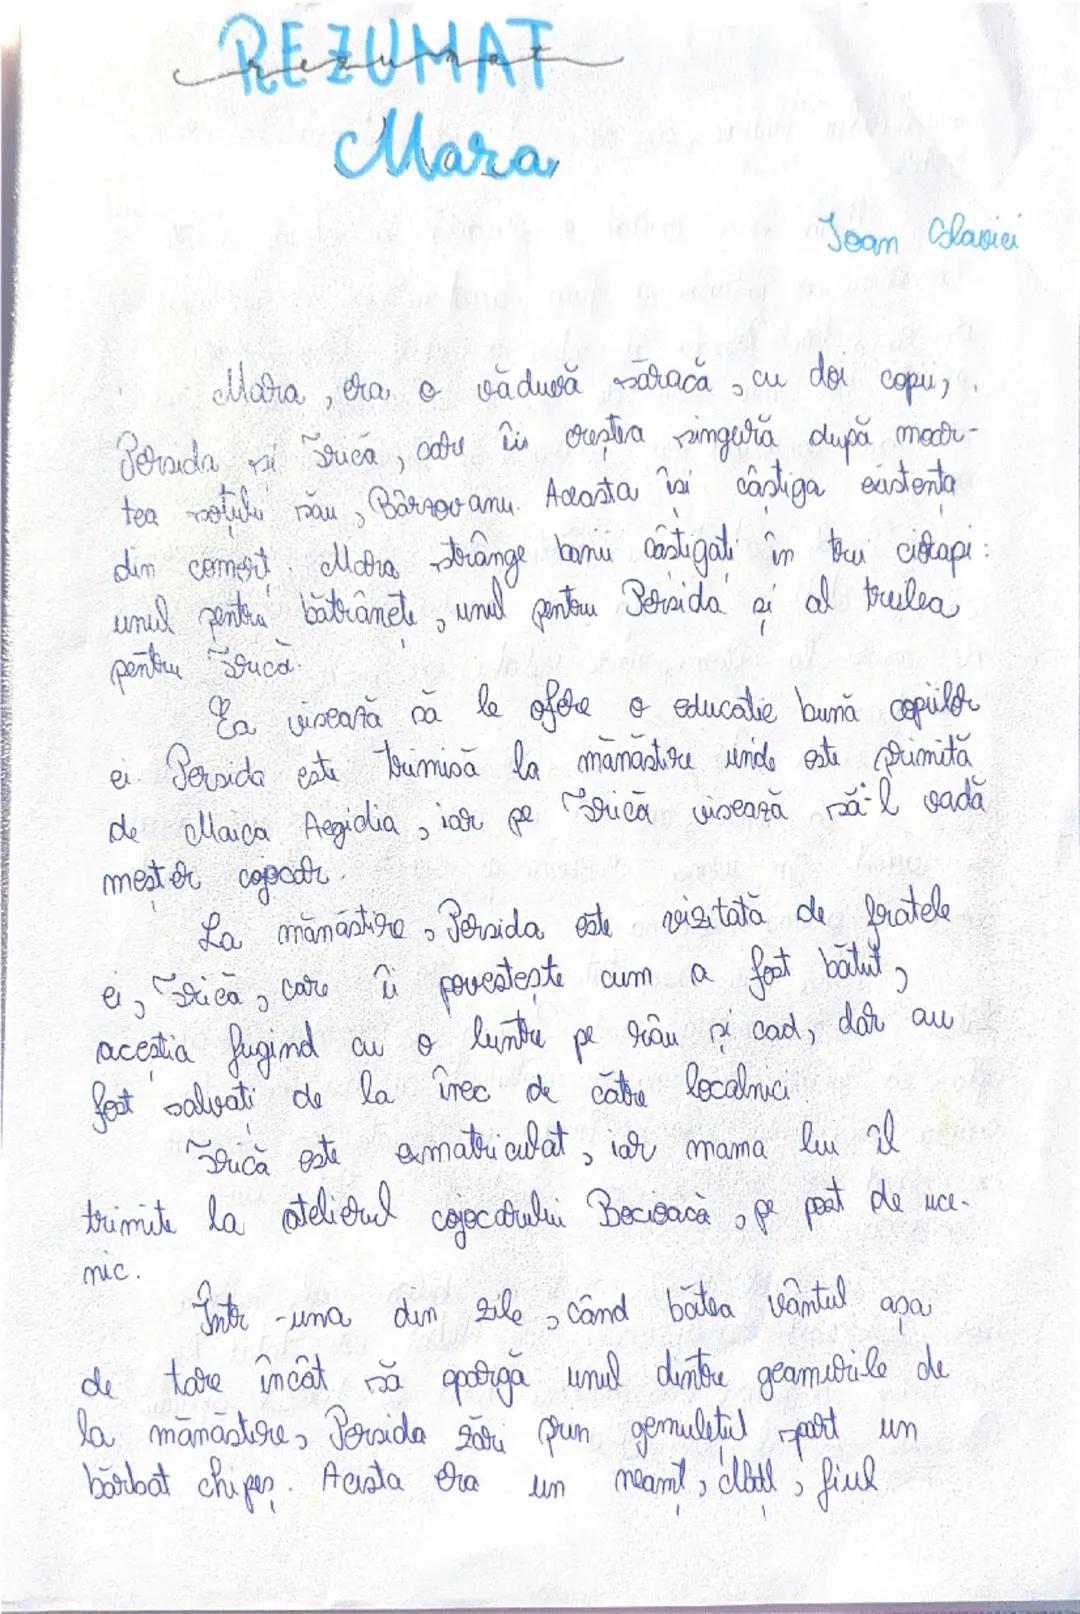 REZUMAT
rezumat
Mara
Ioan Slavici
Mara, era o văduvă săracă, cu doi copii,
Persida și Trică, care îi creștea singură după moar-
tea soțului său, Bârzovanu. Aceasta își câștiga existența
din comerț. Mara strânge banii câștigați în trei ciorapi:
unul pentru bătrânețe, unul pentru Persida și al treilea
pentru Trică.
Ea visează să le ofere o educație bună copiilor
ei. Persida este trimisă la mănăstire unde este primită
de Maica Aegidia, iar pe Trică visează să-l vadă
meșter cojocar.
La mănăstire, Persida este vizitată de fratele
ei, Trică, care îi povestește cum a fost bătut,
aceștia fugind cu o luntre pe râu și cad, dar au
fost salvați de la înec de către localnici.
Trică este exmatriculat, iar mama lui îl
trimite la atelierul cojocarului Bocioacă, pe post de uce-
nic.
Într-una din zile, când bătea vântul așa
de tare încât să spargă unul dintre geamurile de
la mănăstire, Persida zări prin gemulețul spart un
bărbat chipeș. Acesta era un neamț, Națl, fiul